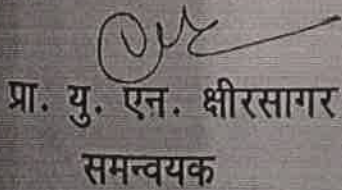 प्रा. यु. एन. क्षीरसागर
समन्वयक